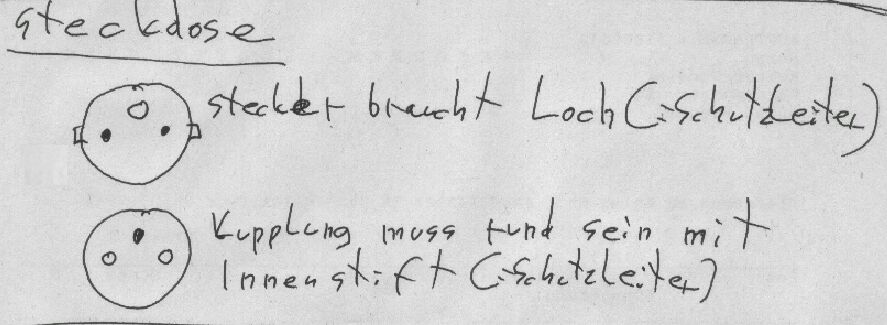 steckdose
stecker braucht Loch (:Schutzleiter)
Kupplung muss rund sein mit
Innenstift (:Schutzleiter)